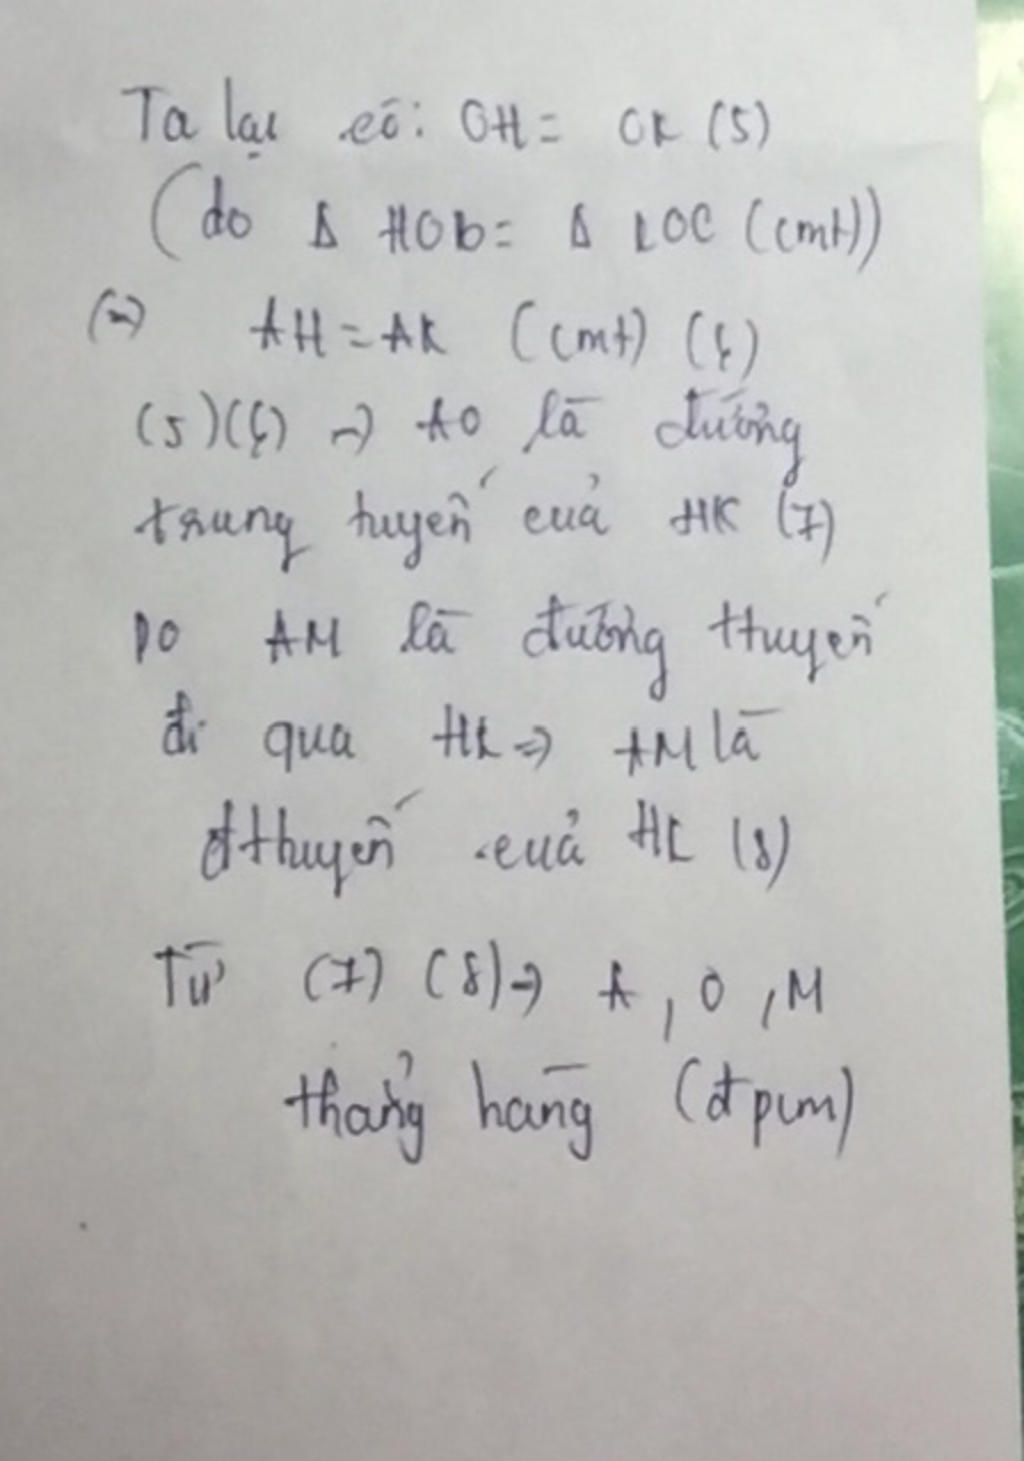 Ta lại có: OH = OK (5)
(do Δ HOb = Δ KOC (cmt))
AH = AK (cmt) (6)
(5)(6) => AO là đường
trung tuyến của HK (7)
Do AM là đường ttuyến
đi qua HK => AM là
đttuyến của HK (8)
Từ (7) (8) => A, O, M
thẳng hàng (đpcm)